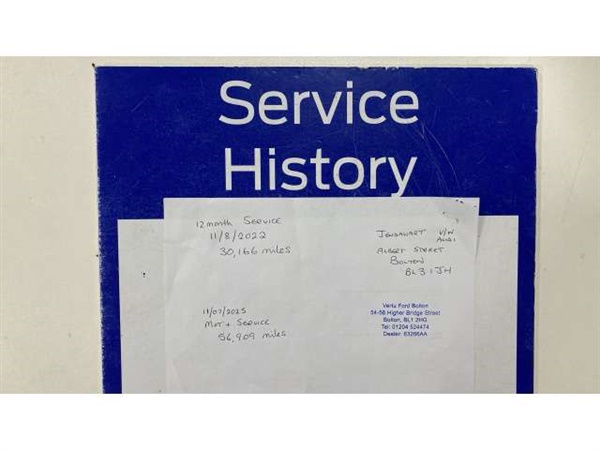 Service
History
12 month SERVICE
11/8/2022
30,166 miles
V/W
AUDI
ALBERT STREET
BOLTON
BL3 1JH
11/07/2025
MOT + SERVICE
56,909 miles
Vertu Ford Bolton
54-56 Higher Bridge Street
Bolton, BL1 2HG
Tel: 01204 524474
Dealer: 63266AA